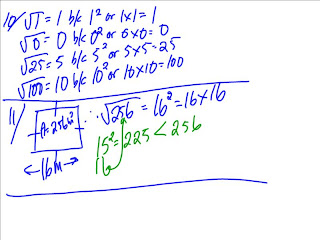 10/ √1 = 1 b/c 1² or 1x1 = 1
√0 = 0 b/c 0² or 0x0 = 0
√25 = 5 b/c 5² or 5x5=25
√100 = 10 b/c 10² or 10x10=100
11/ A=256u² ∴ √256 = 16² = 16x16
15² = 225 < 256
←16m→ 16